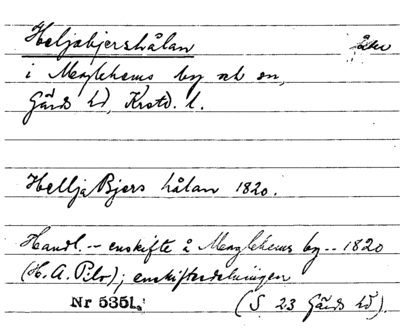 Heljabjershålan åker
i Maglehems by och sn,
Gärds hd, Krstd. l.
Hellja Bjers hålan 1820.
Handl. -- enskifte å Maglehems by -- 1820
(H. A. Pilo); enskiftesdelningen
Nr 5351. (S 23 Gärds hd)